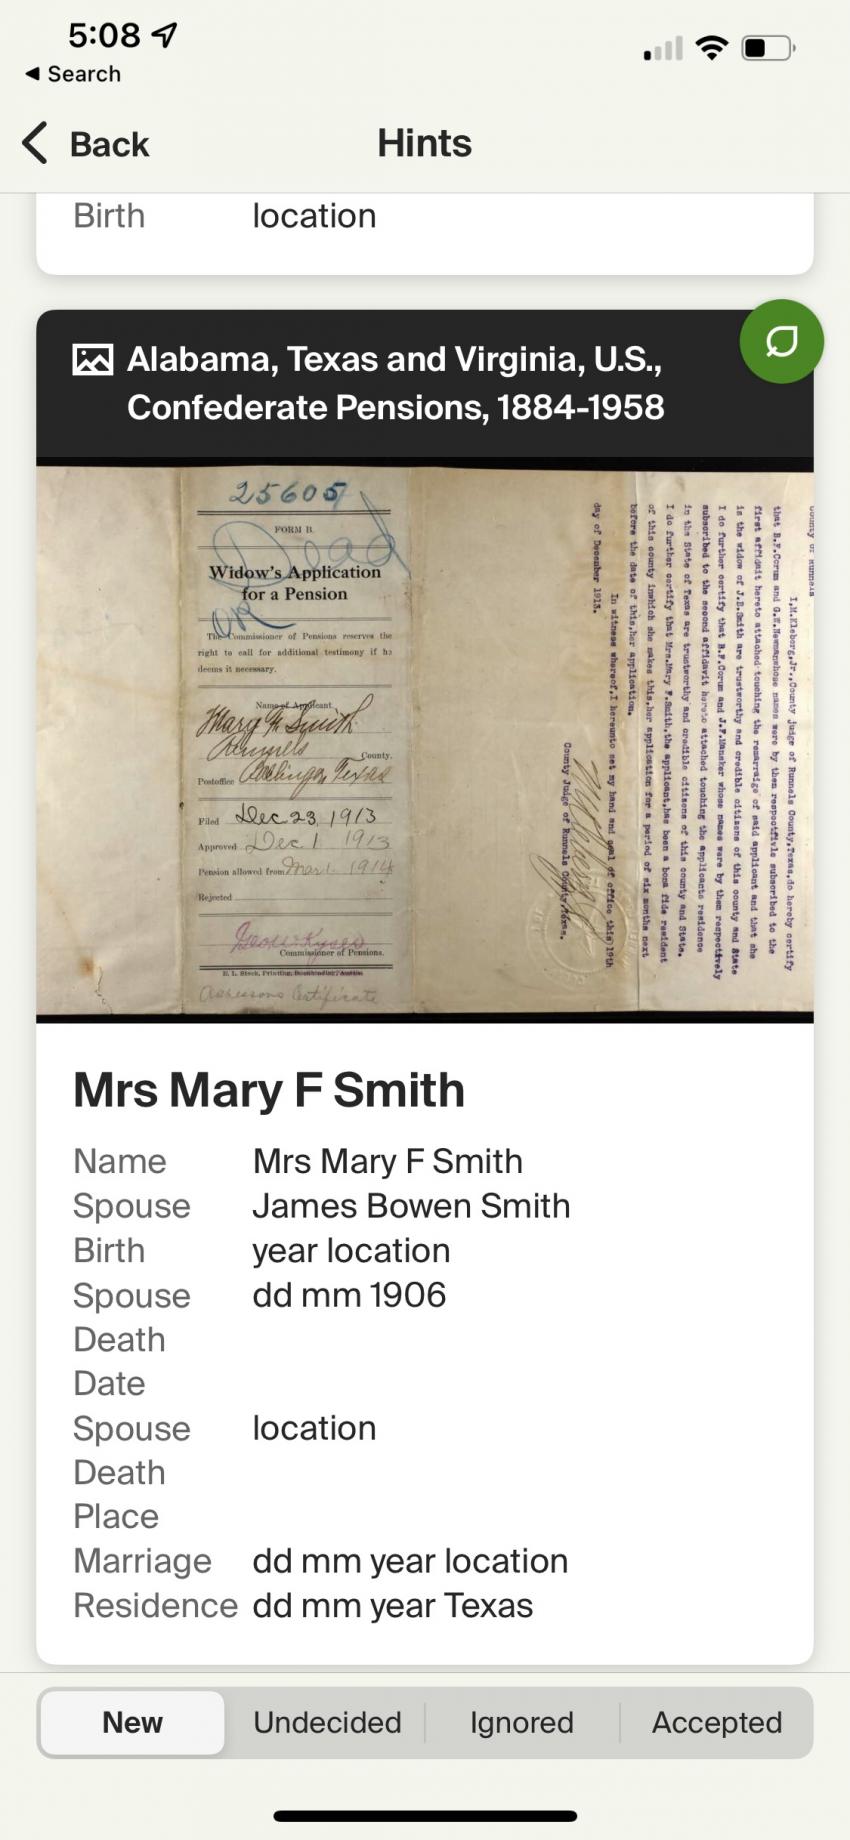 5:08
Search
Back
Hints
Birth location
Alabama, Texas and Virginia, U.S.,
Confederate Pensions, 1884-1958
25605
FORM B.
Dead
Widow's Application
for a Pension
OK
The Commissioner of Pensions reserves the
right to call for additional testimony if he
deems it necessary.
Name of Applicant.
Mary F. Smith
Runnels County,
Postoffice Ballinger, Texas
Filed Dec 23, 1913
Approved Dec 1 1913
Pension allowed from Mar 1. 1914
Rejected
Commissioner of Pensions.
Assessors Certificate
County of Runnels
I,M.Kleberg,Jr.,County Judge of Runnels County,Texas,do hereby certify
that B.F.Corum and G.W.Newman whose names were by them respectfivle subscribed to the
first affidavit hereto attached touching the remarraige of said applicant and that she
is the widow of J.B.Smith are trustworthy and credible citizens of this county and State
I do further certify that B.F.Corum and J.F.Mansker whose names were by them respectively
subscribed to the second affidavit hereto attached touching the applicants residence
in the State of Texas are trustworthy and credible citizens of this county and State.
I do further certify that Mrs.Mary F.Smith,the applicant,has been a bona fide resident
of this county in which she makes this,her application for a period of six months next
before the date of this,her application.
In witness whereof,I hereunto set my hand and seal of office this 19th
day of December 1913.
County Judge of Runnels County,Texas.
Mrs Mary F Smith
Name Mrs Mary F Smith
Spouse James Bowen Smith
Birth year location
Spouse dd mm 1906
Death
Date
Spouse location
Death
Place
Marriage dd mm year location
Residence dd mm year Texas
New Undecided Ignored Accepted